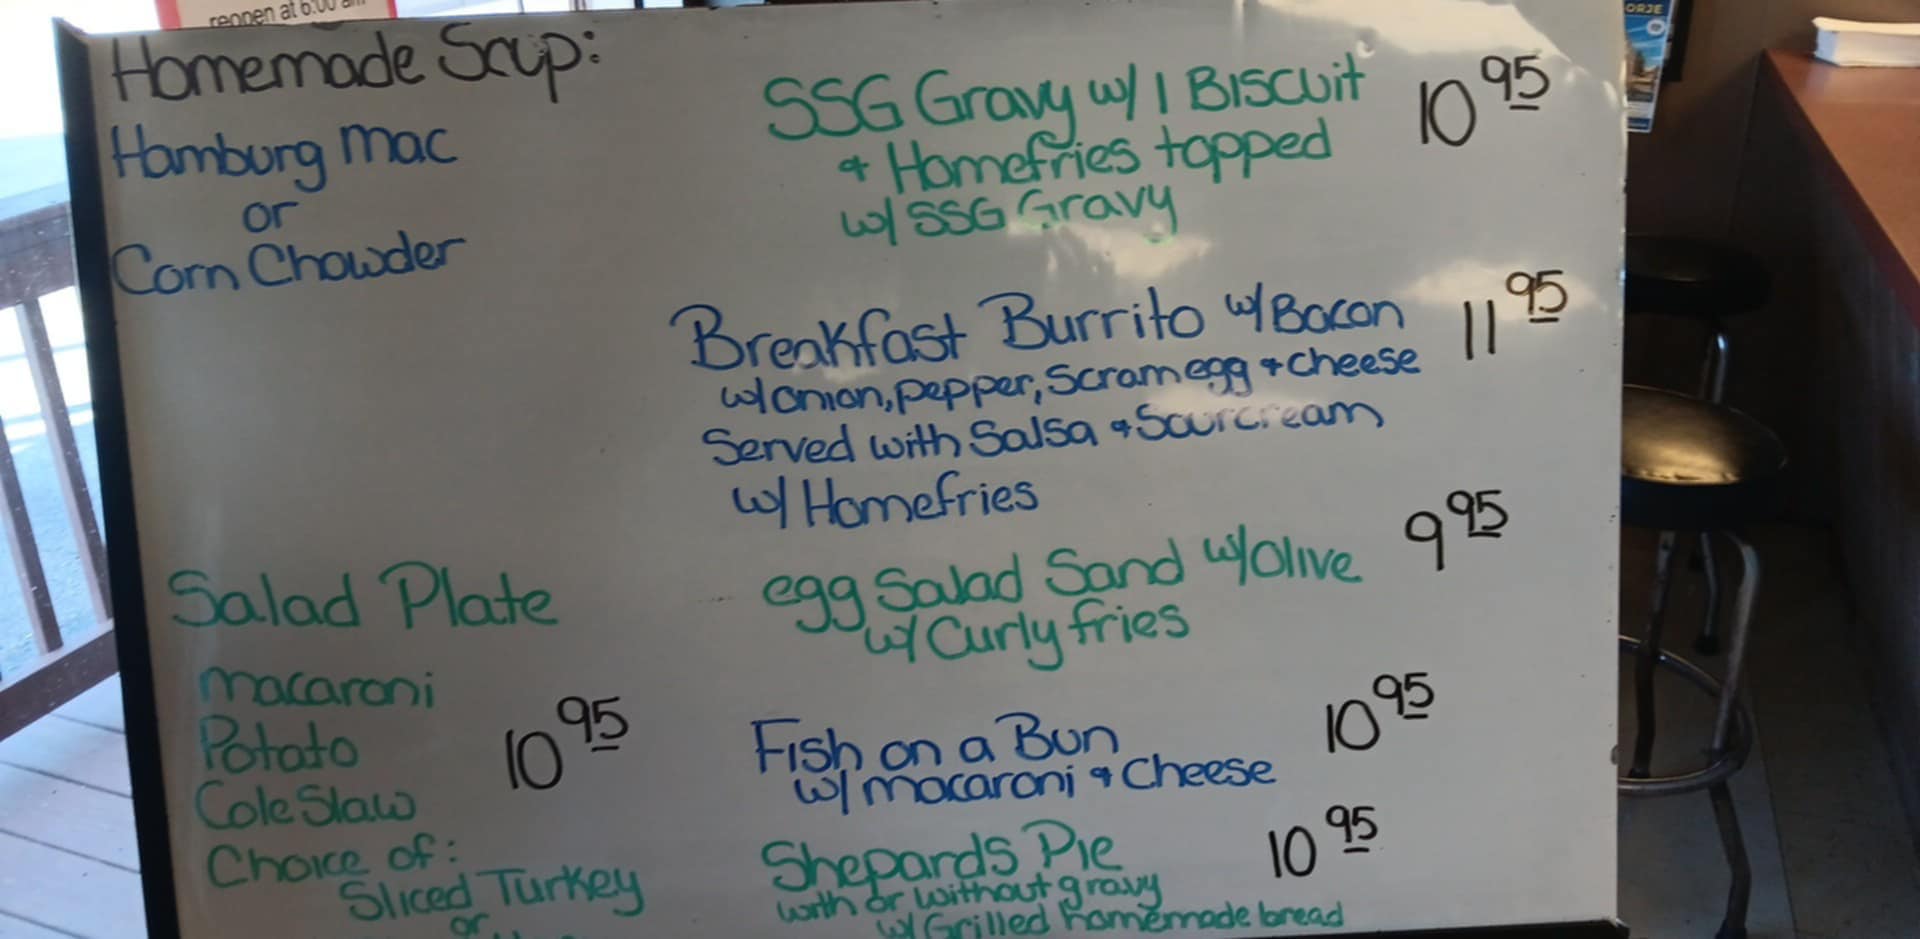 reopen at 6:00 am
Homemade Soup:
Hamburg Mac
or
Corn Chowder
Salad Plate
macaroni
Potato
Cole Slaw
10 95
Choice of:
Sliced Turkey
or
SSG Gravy w/ 1 Biscuit
+ Homefries topped
w/ SSG Gravy
10 95
Breakfast Burrito w/ Bacon
w/ onion, pepper, Scram egg + cheese
Served with Salsa + Sourcream
w/ Homefries
11 95
egg Salad Sand w/ Olive
w/ Curly fries
9 95
Fish on a Bun
w/ macaroni + Cheese
10 95
Shepards Pie
with or without gravy
w/ Grilled homemade bread
10 95